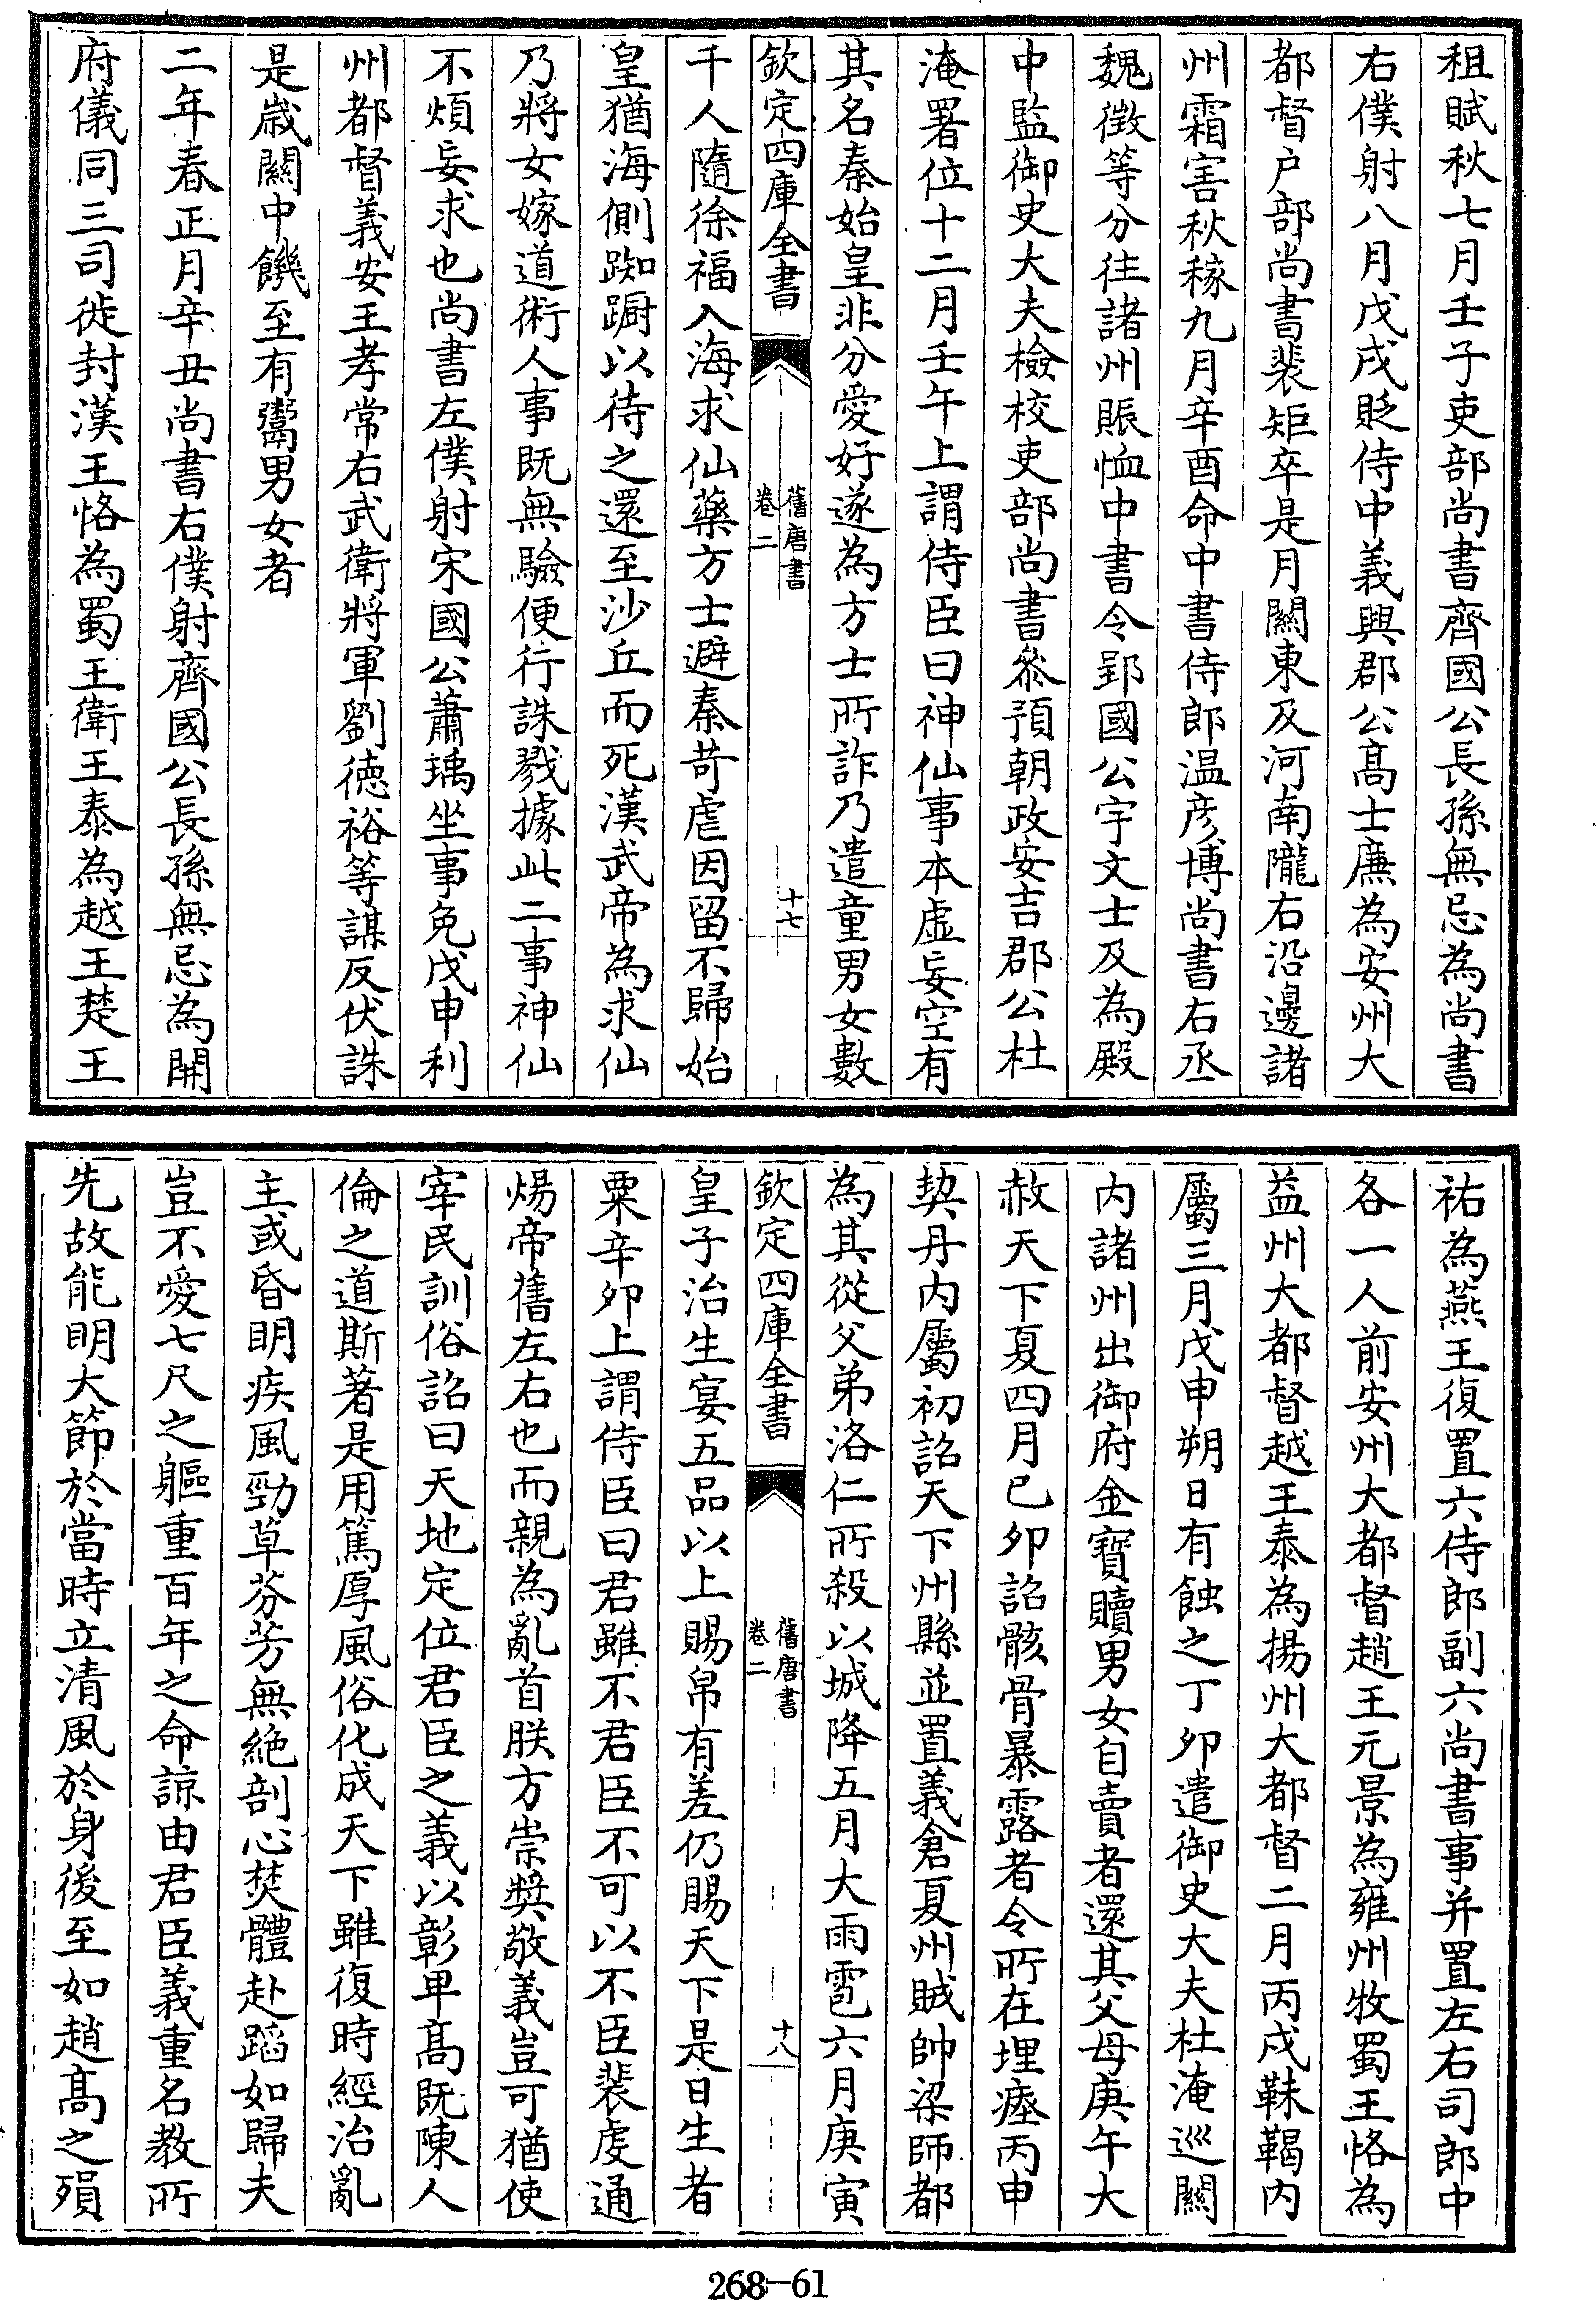 租賦秋七月壬子吏部尚書齊國公長孫無忌為尚書
右僕射八月戊戌貶侍中義興郡公髙士廉為安州大
都督户部尚書裴矩卒是月關東及河南隴右沿邊諸
州霜害秋稼九月辛酉命中書侍郎温彦博尚書右丞
魏徵等分往諸州賑恤中書令郢國公宇文士及為殿
中監御史大夫檢校吏部尚書叅預朝政安吉郡公杜
淹署位十二月壬午上謂侍臣曰神仙事本虚妄空有
其名秦始皇非分愛好遂為方士所詐乃遣童男女數
欽定四庫全書
舊唐書
卷二
十七
千人隨徐福入海求仙藥方士避秦苛虐因留不歸始
皇猶海側踟蹰以待之還至沙丘而死漢武帝為求仙
乃將女嫁道術人事既無驗便行誅戮據此二事神仙
不煩妄求也尚書左僕射宋國公蕭瑀坐事免戊申利
州都督義安王孝常右武衛將軍劉徳裕等謀反伏誅
是歲關中饑至有鬻男女者
二年春正月辛丑尚書右僕射齊國公長孫無忌為開
府儀同三司徙封漢王恪為蜀王衛王泰為越王楚王
祐為燕王復置六侍郎副六尚書事并置左右司郎中
各一人前安州大都督趙王元景為雍州牧蜀王恪為
益州大都督越王泰為揚州大都督二月丙戌靺鞨内
屬三月戊申朔日有蝕之丁卯遣御史大夫杜淹巡關
内諸州出御府金寶贖男女自賣者還其父母庚午大
赦天下夏四月已卯詔骸骨暴露者令所在埋瘞丙申
契丹内屬初詔天下州縣並置義倉夏州賊帥梁師都
為其從父弟洛仁所殺以城降五月大雨雹六月庚寅
欽定四庫全書
舊唐書
卷二
十八
皇子治生宴五品以上賜帛有差仍賜天下是日生者
粟辛卯上謂侍臣曰君雖不君臣不可以不臣裴虔通
煬帝舊左右也而親為亂首朕方崇奬敬義豈可猶使
宰民訓俗詔曰天地定位君臣之義以彰卑髙既陳人
倫之道斯著是用篤厚風俗化成天下雖復時經治亂
主或昏明疾風勁草芬芳無絶剖心焚體赴蹈如歸夫
豈不愛七尺之軀重百年之命諒由君臣義重名教所
先故能明大節於當時立清風於身後至如趙髙之殞
268-61